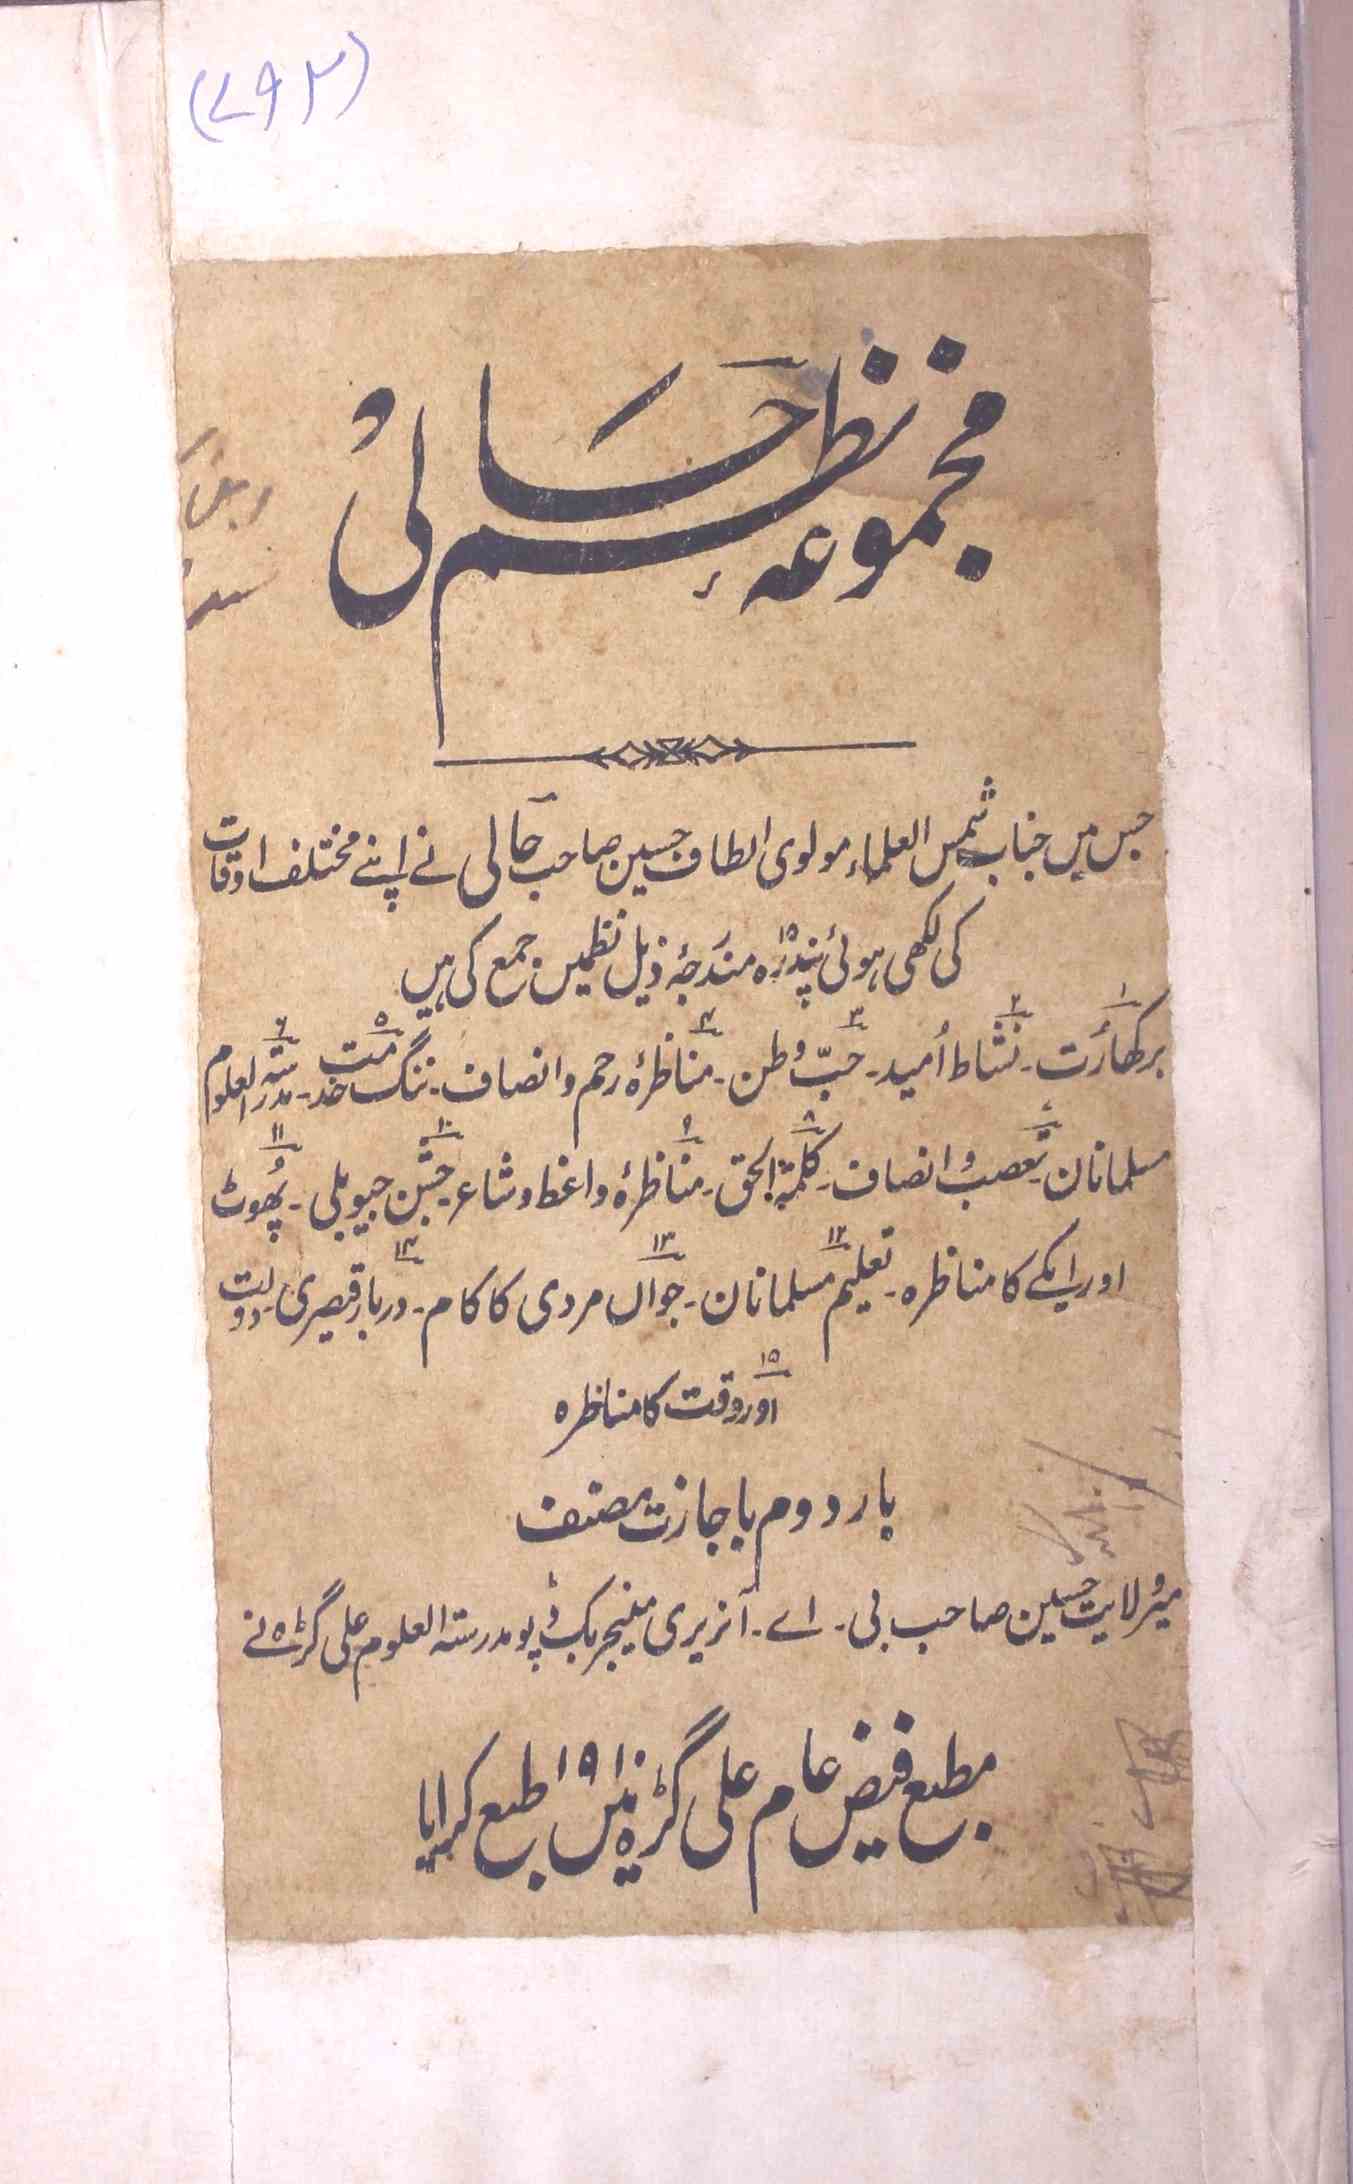 (۷۹۲)
مجموعہء نظم حالی
جس میں جناب شمس العلماء مولوی الطاف حسین صاحب حالی نے اپنے مختلف اوقات
کی لکھی ہوئی پندرہ ۱۵ مندرجۂ ذیل نظمیں جمع کی ہیں
۱ برکھارُت ۔ ۲ نشاط اُمید ۔ ۳ حبّ وطن ۔ ۴ مناظرۂ رحم و انصاف ۔ ۵ ننگ خدمت ۔ ۶ مدرستہ العلوم
مسلمانان ۔ ۷ تعصب و انصاف ۔ ۸ کلمۃ الحق ۔ ۹ مناظرۂ واعظ و شاعر ۔ ۱۰ جشن جیوبلی ۔ ۱۱ پھُوٹ
اور ایکے کا مناظرہ ۔ ۱۲ تعلیم مسلمانان ۔ ۱۳ جواں مردی کا کام ۔ ۱۴ دربار قیصری ۔ دولت
۱۵ اور وقت کا مناظرہ
بار دوم باجازت مصنف
میر ولایت حسین صاحب بی ۔ اے ۔ آنریری منیجر بک ڈپو مدرستہ العلوم علی گڑہ نے
مطبع فیض عام علی گڑہ میں طبع کرایا